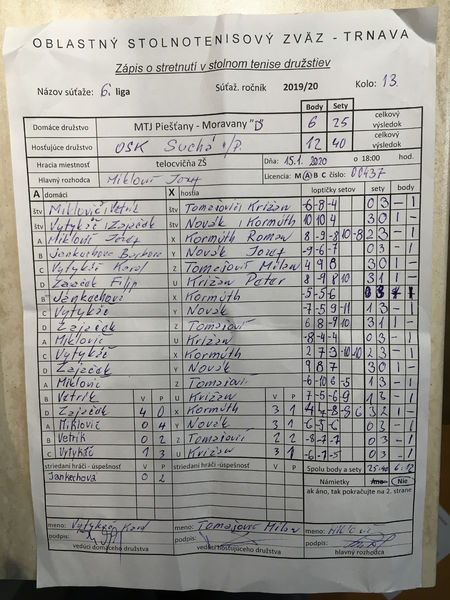 OBLASTNÝ STOLNOTENISOVÝ ZVÄZ - TRNAVA
Zápis o stretnutí v stolnom tenise družstiev
Názov súťaže: 6. liga Súťaž. ročník 2019/20 Kolo: 13.
Body Sety
Domáce družstvo MTJ Piešťany - Moravany "D" 6 25 celkový výsledok
Hosťujúce družstvo OŠK Suchá n/P. 12 40 celkový výsledok
Hracia miestnosť telocvičňa ZŠ Dňa: 15.1.2020 o 18:00 hod.
Hlavný rozhodca Miklovič Jozef Licencia: M A B C číslo: 00437
A domáci X hostia loptičky setov sety body
štv Miklovič i Vetrík štv Tomašovič i Križan -6 -8 -4 0 3 - 1
štv Vytykáč i Zajaček štv Novák i Kormúth 10 10 4 3 0 1 -
A Miklovič Jozef X Kormúth Roman 8 -9 -8 10 -8 2 3 - 1
B Jankechova Barbora Y Novák Jozef -9 -6 -7 0 3 - 1
C Vytykáč Karol Z Tomašovič Milan 4 9 8 3 0 1 -
D Zajaček Filip U Križan Peter 8 9 8 10 3 1 1 -
B Jankechova X Kormúth -5 -5 -6 0 3 - 1
C Vytykáč Y Novák -7 -5 9 -11 1 3 - 1
D Zajaček Z Tomašovič 6 8 -9 10 3 1 1 -
A Miklovič U Križan -8 -4 -4 0 3 - 1
C Vytykáč X Kormúth 2 7 -3 -10 -10 2 3 - 1
D Zajaček Y Novák 9 8 7 3 0 1 -
A Miklovič Z Tomašovič -6 -10 6 -5 1 3 - 1
B Vetrík V P U Križan V P 7 -5 -6 -9 1 3 - 1
D Zajaček 4 0 X Kormúth 3 1 3 2 1 -
A Miklovič 0 4 Y Novák 3 1 -6 -5 -6 0 3 - 1
B Vetrík 0 2 Z Tomašovič 2 2 -8 -7 -7 0 3 - 1
C Vytykáč 1 3 U Križan 3 1 -6 -7 -5 0 3 - 1
striedaní hráči - úspešnosť V P striedaní hráči - úspešnosť V P Spolu body a sety 25:40 6:12
Jankechova 0 2 Námietky Áno Nie
ak áno, tak pokračujte na 2. strane
meno: Vytykáč Karol meno: Tomašovič Milan meno: Miklovič
podpis: podpis: podpis:
vedúci domáceho družstva vedúci hosťujúceho družstva hlavný rozhodca